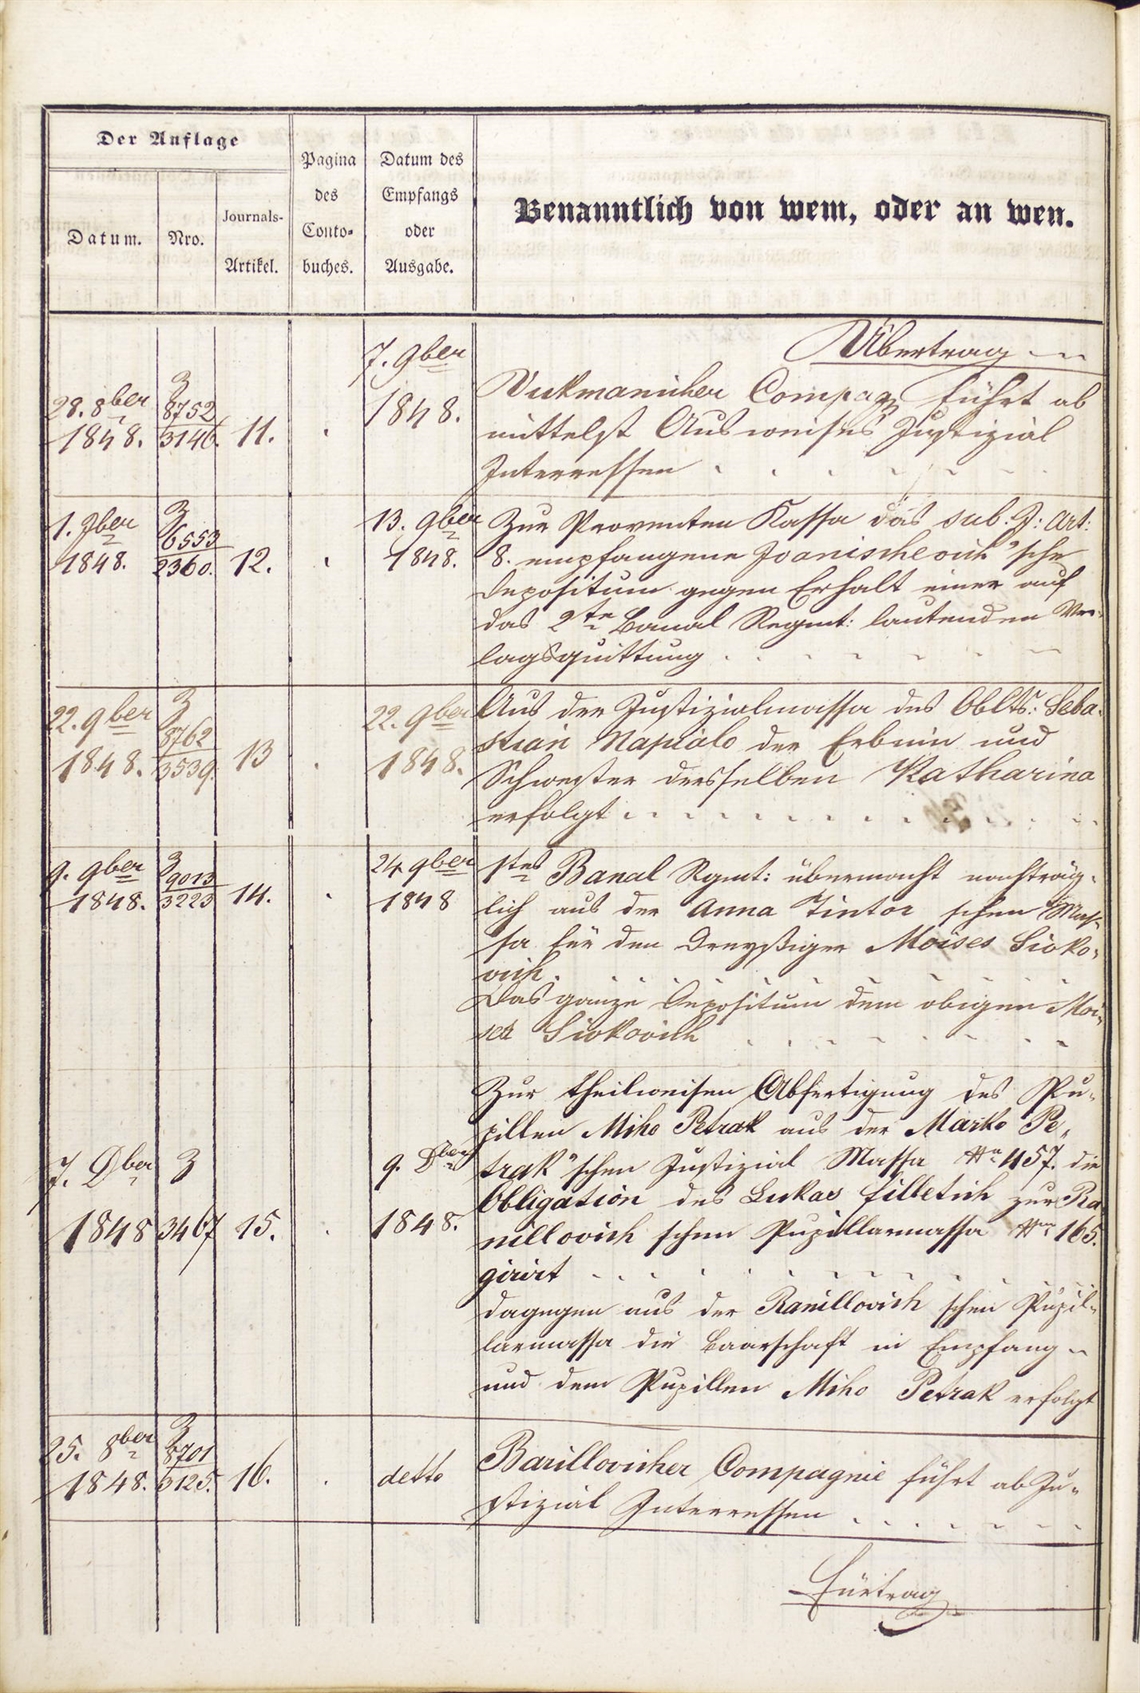 Der Auflage
Datum.
Nro.
Journals-
Artikel.
Pagina
des
Conto-
buches.
Datum des
Empfangs
oder
Ausgabe.
Benanntlich von wem, oder an wen.
Übertrag
28. 8ber
1848.
3
8752
3146.
11.
7. 9ber
1848.
Vukmanicher Compag führt ab
mittelst Ausweises Justizial
Interressen
1. 7ber
1848.
3
6553
2360.
12.
13. 9ber
1848.
Zur Proventen Kassa das sub. J: Art:
8. empfangene Joanischevich'sche
Depositum gegen Erhalt einer auf
das 2te Banal Regmt: lautenden Ver-
lagsquittung
22. 9ber
1848.
3
8762
3539.
13
22. 9ber
1848.
Aus der Justizialmassa des Oblts: Seba-
stian Napialo der Erbnin und
Schwester desselben Katharina
erfolgt
9. 9ber
1848.
3
9013
3223
14.
24. 9ber
1848
1tes Banal Rgmt: übermacht nachträg-
lich aus der Anna Tintor schen Mas-
sa für den Dreyßiger Moises Sivko-
vich.
Das ganze Depositum dem obigen Moi-
ses Sivkovich
7. Dber
1848
3
3467
15.
9. Dber
1848.
Zur theilweisen Abfertigung des Pu-
pillen Miho Petrak aus der Marko Pe-
trak'schen Justizial Massa No 457. die
Obligation des Lukas Filletich zur Ra
nillovich schen Pupillarmassa No 165.
girirt
dagegen aus der Ranillovich schen Pupil-
larmassa die Baarschaft in Empfang
und dem Pupillen Miho Petrak erfolgt
25. 8ber
1848.
3
8701
3125.
16.
detto
Barillovicher Compagnie führt ab Ju-
stizial Interressen
Fürtrag